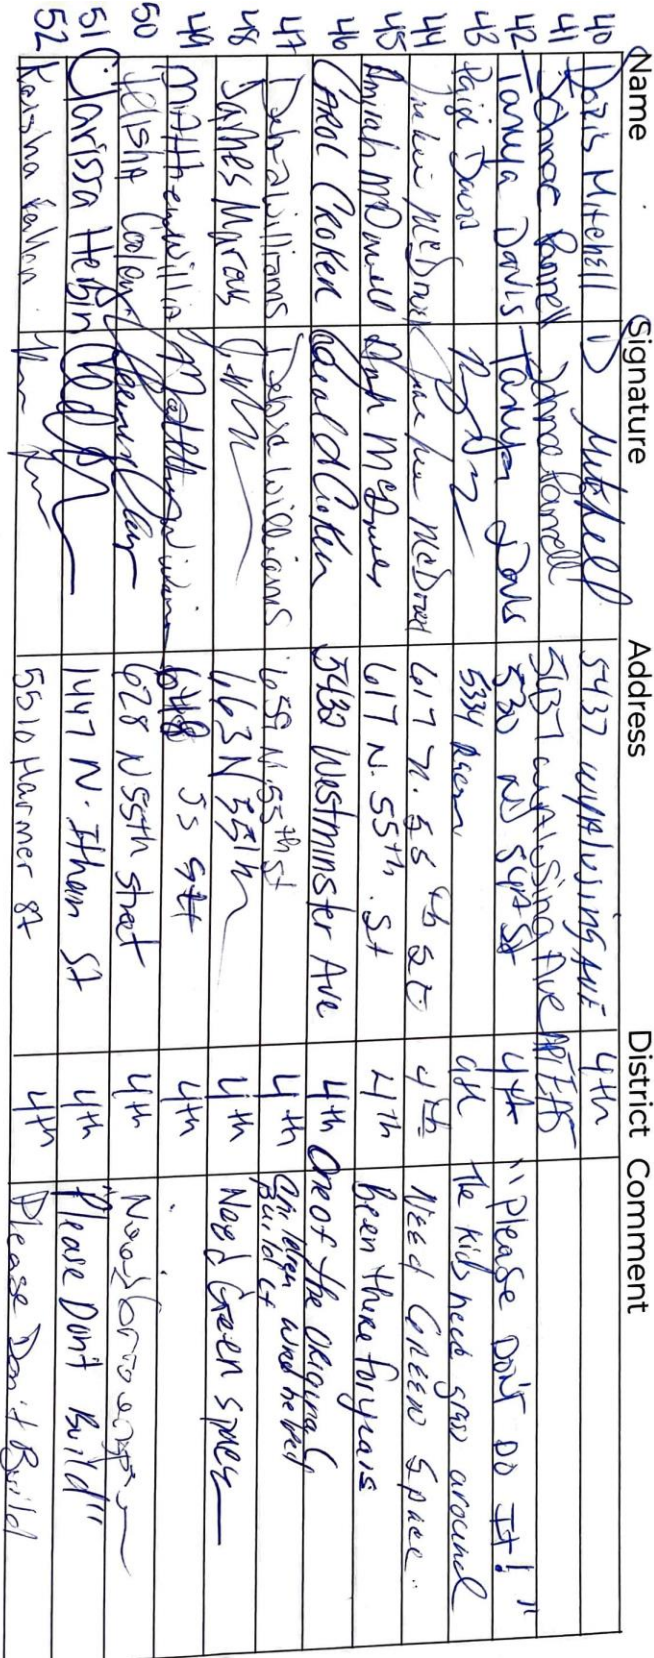 Name Signature Address District Comment
40 Doris Mitchell D Mitchell 5437 wyalusing AVE 4th
41 Johnae Parnell Johnae Parnell 5437 wyalusing Ave APT
42 Tanya Davis Tanya Davis 530 N 54th St 4th "Please DON'T DO It!"
43 Paige Davis 5334 4th The kids need grass around
44 McDowell McDowell 617 N. 55th St. 4th NEEd GREEN Space.
45 Amiah McDowell McDowell 617 N. 55th. St 4th Been there for years
46 CAROL CROKER Carol Croker 5432 Westminster Ave 4th One of the Original
47 Debra Williams Debra Williams 659 N. 55th St 4th Children Build it
48 James 663 N 55th 4th Need Green space
49 Matthew Willia Matthew 648 55 4th
50 628 N 55th Street 4th
51 Clarissa Herbin 1447 N. Ithan St 4th "Please Don't Build"
52 Keisha 5510 Harmer St 4th Please Don't Build